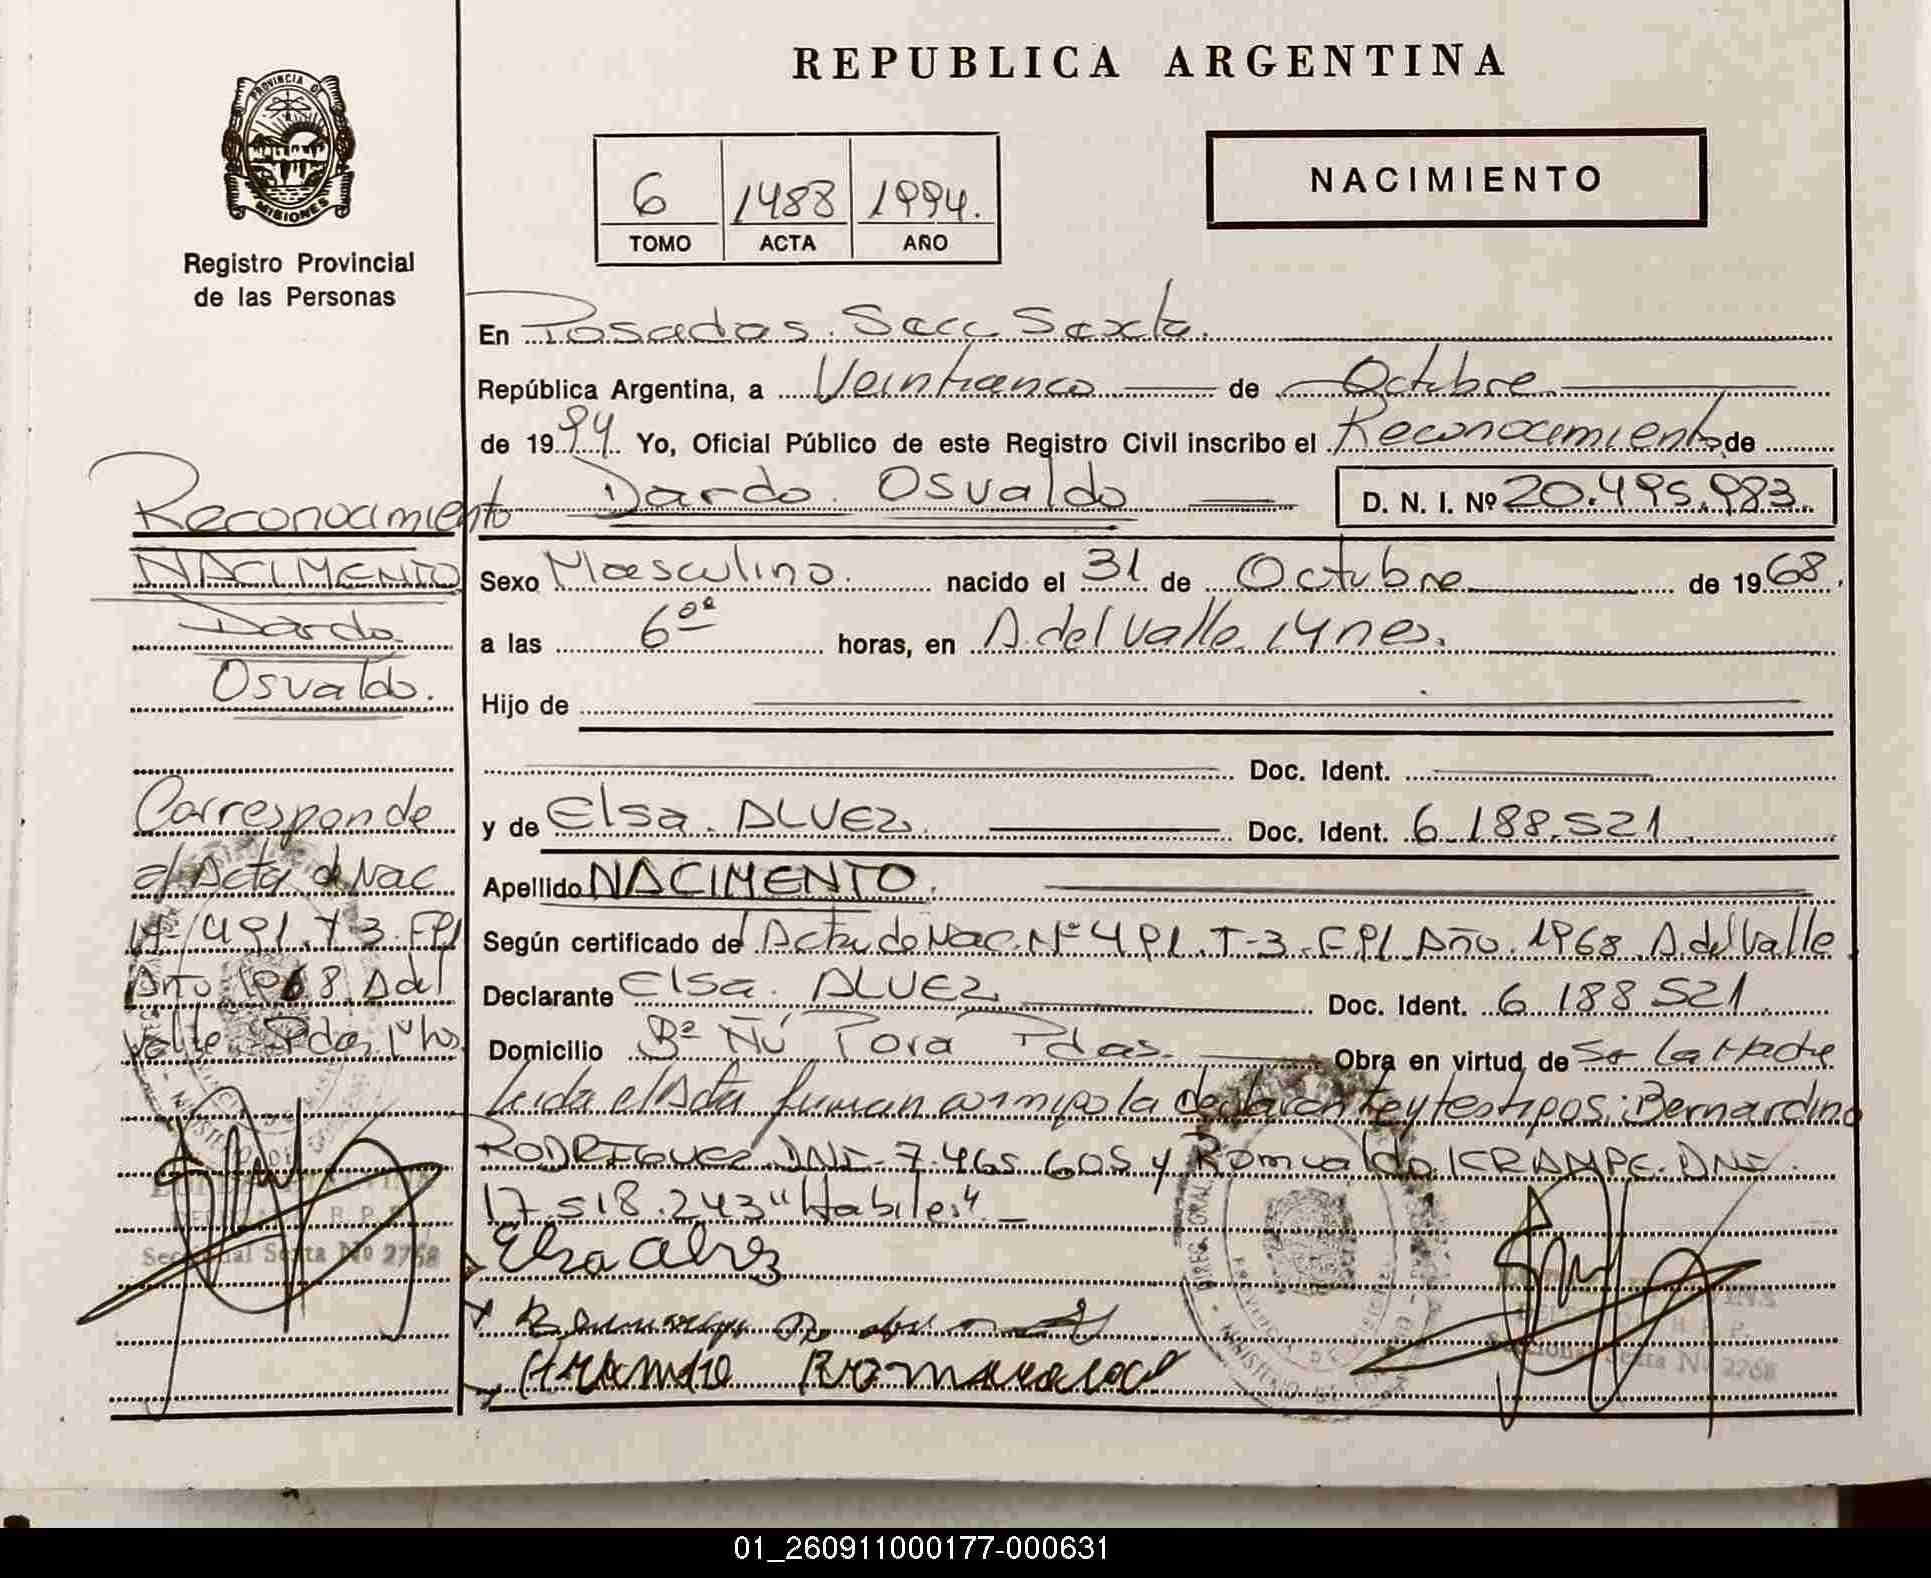 REPUBLICA ARGENTINA
PROVINCIA DE
MISIONES
Registro Provincial
de las Personas
6 1488 1994.
TOMO ACTA AÑO
NACIMIENTO
En Posadas. Secc. Sexta.
República Argentina, a Veinticinco de Octubre
de 1994. Yo, Oficial Público de este Registro Civil inscribo el Reconocimiento de
Dardo Osvaldo D. N. I. Nº 20.495.983.
Sexo Masculino. nacido el 31 de Octubre de 1968.
a las 6 horas, en A. del Valle
Hijo de
Doc. Ident.
y de Elsa ALVEZ Doc. Ident. 6.188.521.
Apellido NACIMENTO.
Según certificado de Acta de Nac. Nº 491. T-3. Año 1968. A. del Valle
Declarante Elsa. ALVEZ Doc. Ident. 6.188.521.
Domicilio Bº Ñú Porá Pdas. Obra en virtud de Ser La Madre
Leida el Acta firman conmigo la declarante y testigos: Bernardino
RODRIGUEZ DNI. 7.465.605 y Romualdo KRAMPE. DNI.
17.518.243 "Habiles".
Elsa Alvez
Reconocimiento
NACIMENTO
Dardo
Osvaldo.
Corresponde
al Acta d Nac
Nº 491. T 3.
Año 1968 A del
Valle Pdas
Seccional Sexta Nº 2768
Sexta Nº 2768
01_260911000177-000631